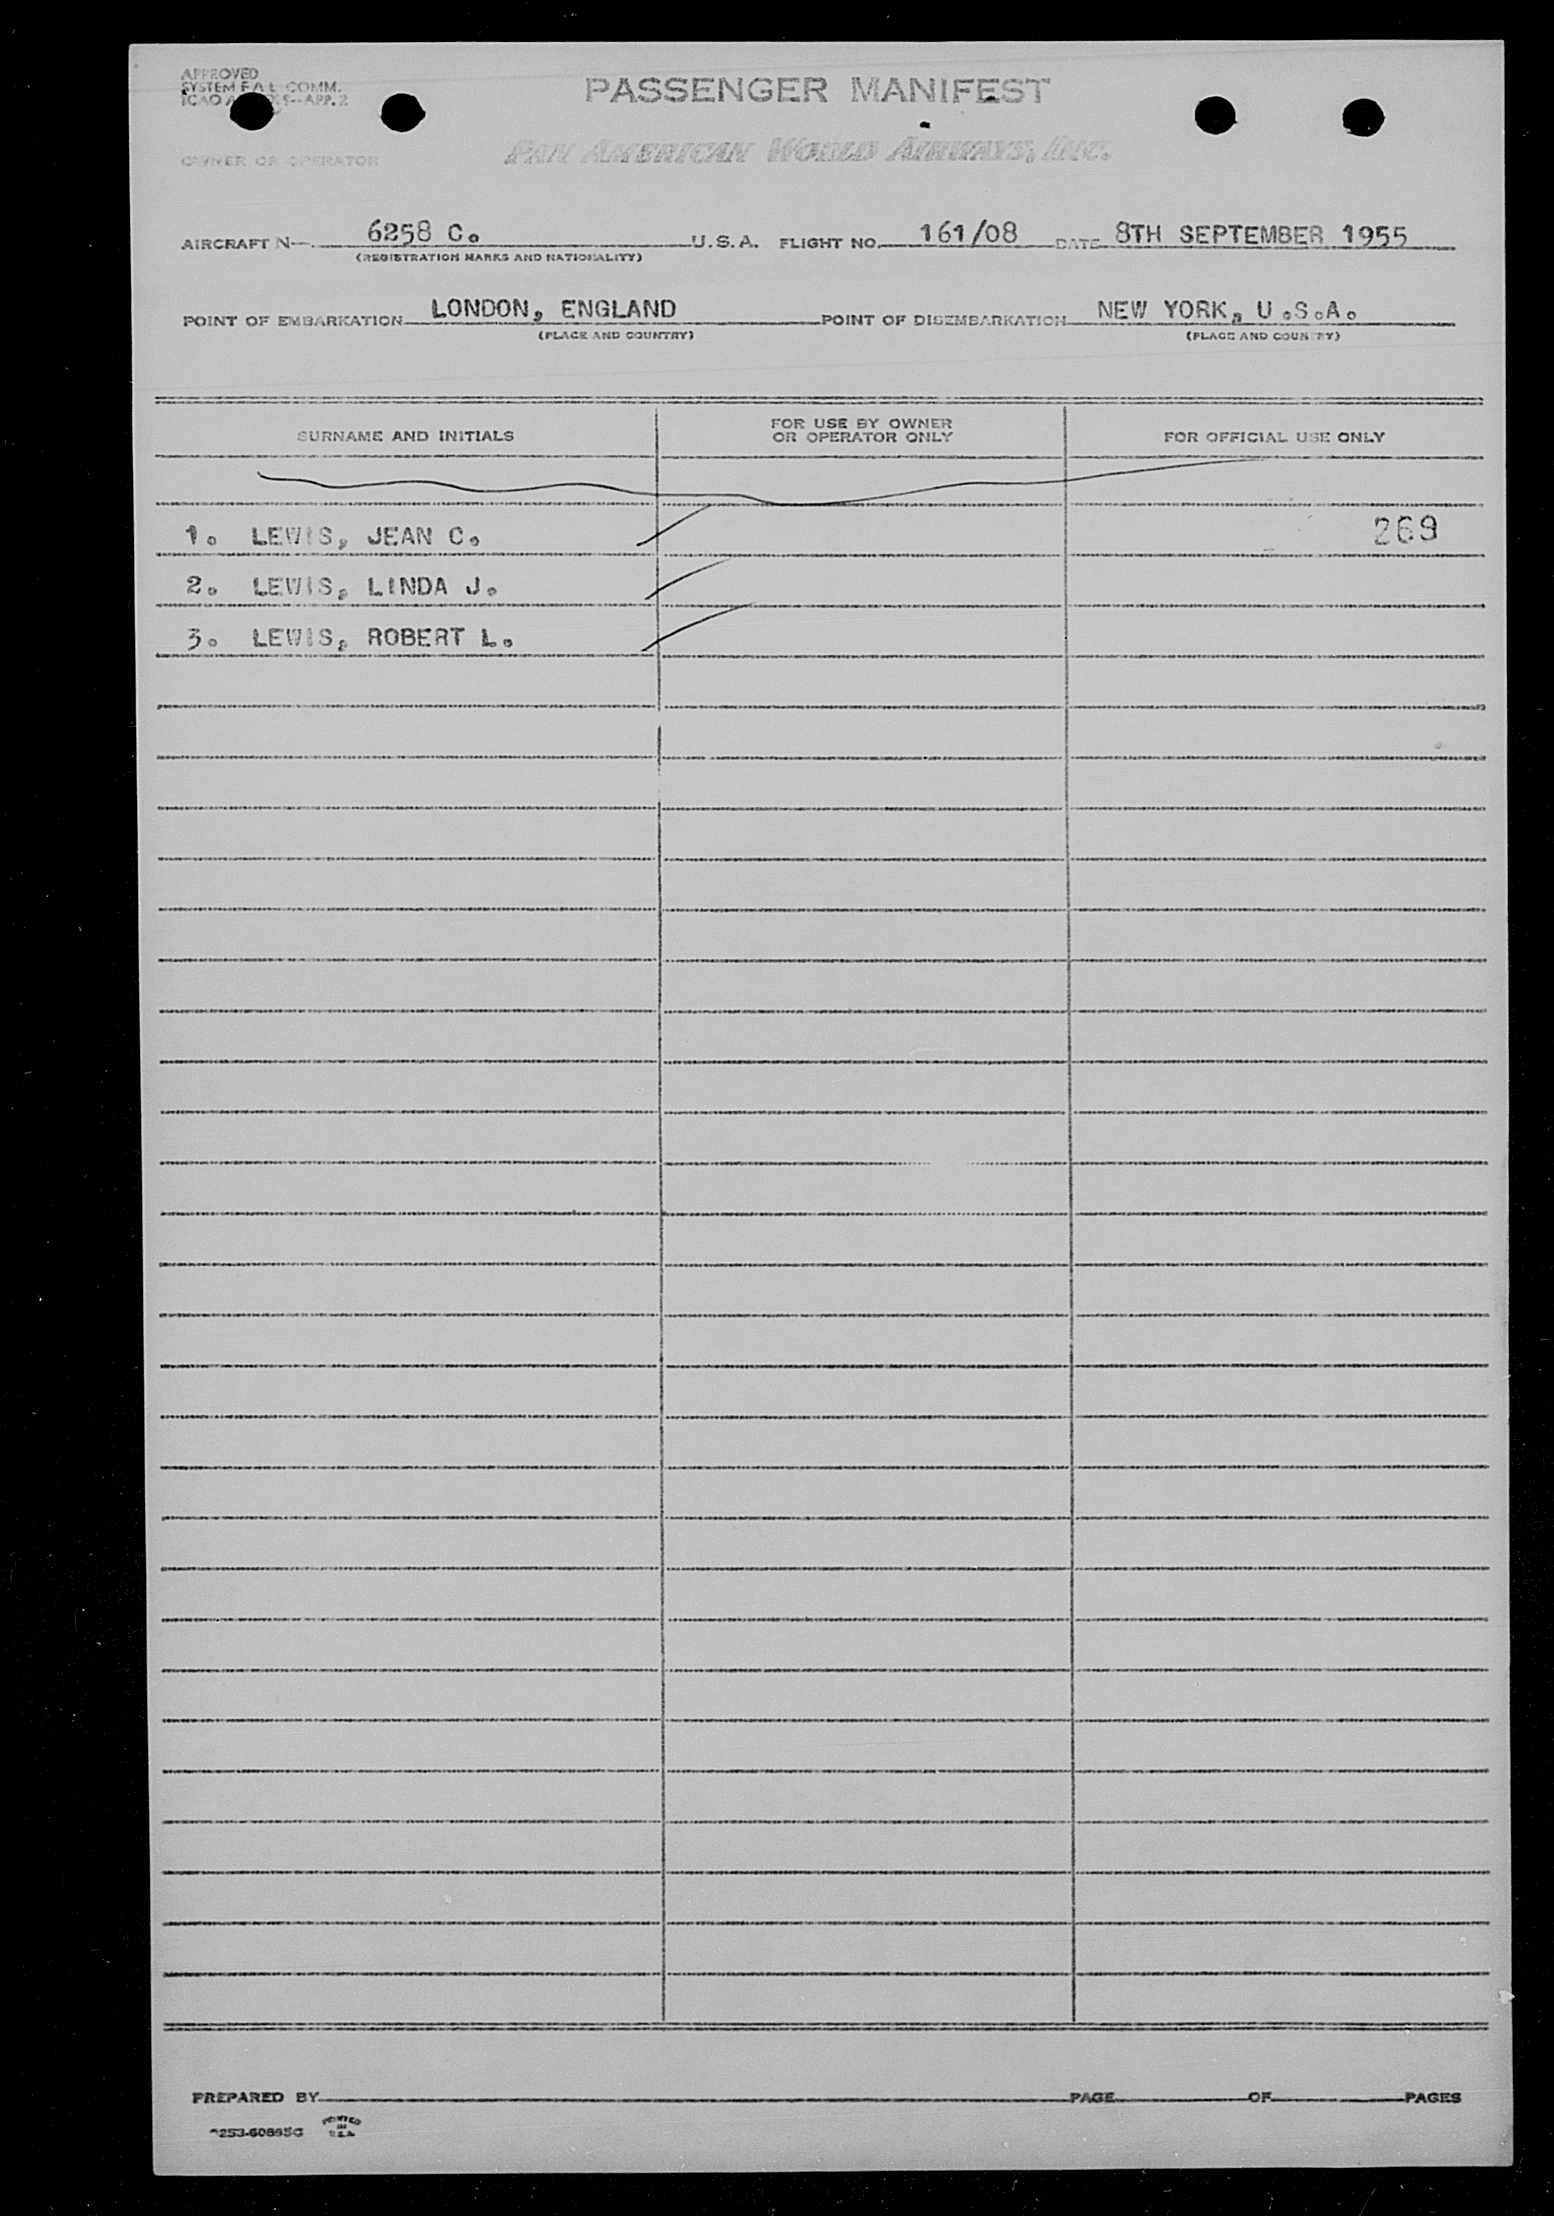 APPROVED
SYSTEM F A L COMM.
ICAO 9-APP. 2
PASSENGER MANIFEST
OWNER OR OPERATOR
PAN AMERICAN WORLD AIRWAYS, INC.
AIRCRAFT N— 6258 C. U.S.A. FLIGHT NO. 161/08 DATE 8TH SEPTEMBER 1955
(REGISTRATION MARKS AND NATIONALITY)
POINT OF EMBARKATION LONDON, ENGLAND POINT OF DISEMBARKATION NEW YORK, U.S.A.
(PLACE AND COUNTRY) (PLACE AND COUNTRY)
SURNAME AND INITIALS FOR USE BY OWNER OR OPERATOR ONLY FOR OFFICIAL USE ONLY
1. LEWIS, JEAN C. 269
2. LEWIS, LINDA J.
3. LEWIS, ROBERT L.
PREPARED BY PAGE OF PAGES
PRINTED
IN
U.S.A.